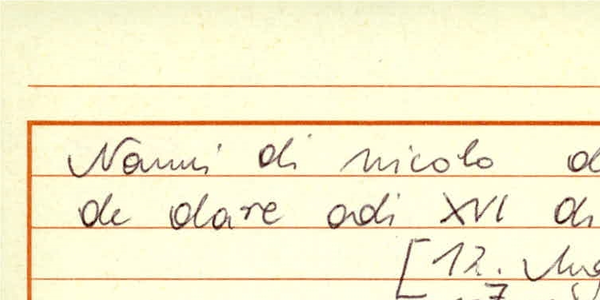 Nanni di nicolo
de dare adi XVI di
[12.